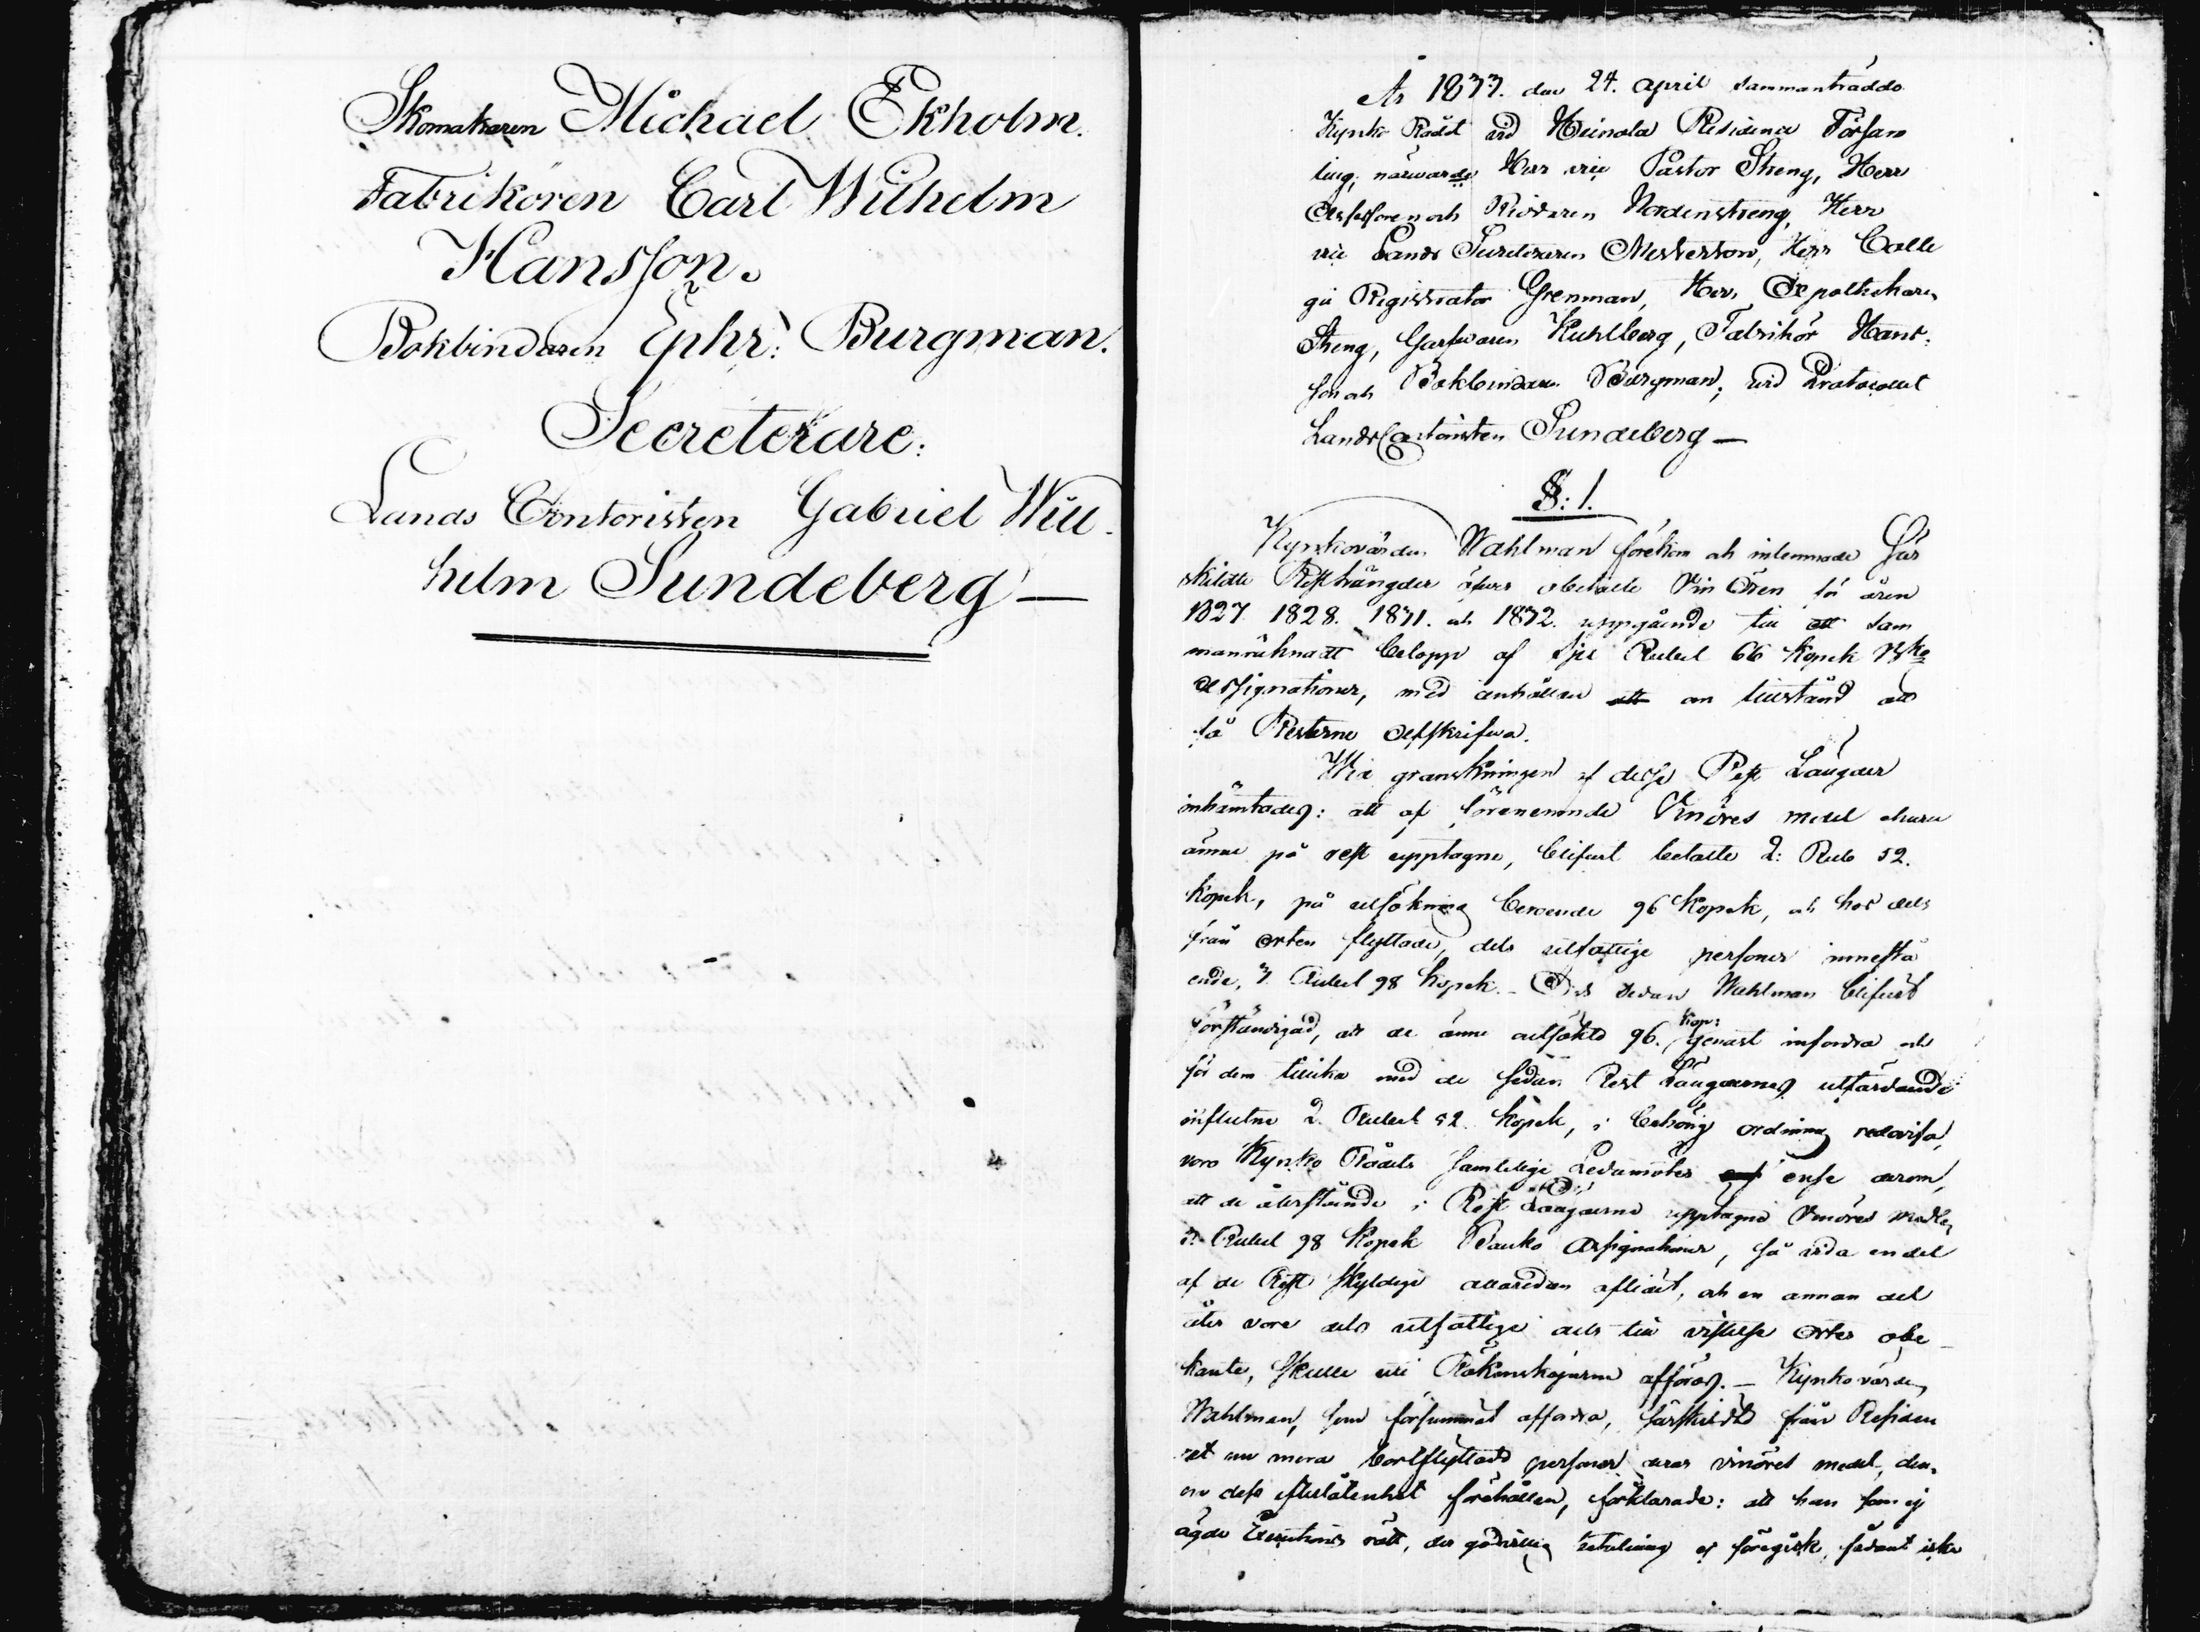 Skomakaren Michael Ekholm.
Fabrikören Carl Wilhelm
Hansson.
Bokbindaren Ephr: Burgman.
Secreterare:
Lands Contoristen Gabriel Will
helm Sundeberg —
År 1833. den 24. April sammanträdde
Kyrko Rådet vid Heinola Residence Försam
ling, närvarande Herr vice Pastor Streng, Herr
Assessoren och Riddaren Nordenstreng, Herr
vice Lands Secreteraren Mesterton, Herr Colle
gii Registrator Grenman, Herr Apothekaren
Streng, Garfvaren Kuhlberg, Fabrikör Hans-
son och Bokbindaren Burgman; vid Protocollet
Lands Contoristen Sundeberg —
§: 1.
Kyrkovärden Wahlman förekom och inlemnade sär
skildte Restlängder öfver obetalte Vin Ören för åren
1827 1828. 1831. och 1832. uppgående till ett sam
manräknadt belopp af Sju Rubel 66 Kopek B:ko
Assignationer, med anhållan om tillstånd att
få Resterne Afskrifva.
Vid granskningen af desse Rest Längder
inhämtades: att af förenemnde Vinöres medel ehuru
ännu på rest upptagne, blifvit betalte 2: Rub 52.
Kopek, på utsökning beroende 96 Kopek, och hos dels
från Orten flyttade, dels utfattige personer innestå
ende, 3. Rubel 98 Kopek. — Och sedan Wahlman blifvit
förständigad, att de ännu utsökte 96. Kop: genast infordra och
för dem tillika med de sedan Rest Längdernes utfärdande
influtne 2. Rubel 52. Kopek, i behörig ordning redovisa,
voro Kyrko Rådets samtelige Ledamöter ense derom,
att de återstående i Rest Längderne upptagne Vinöres medlen
3. Rubel 98 Kopek Banko Assignationer, så vida en del
af de Rest skyldige allaredan aflidit, och en annan del
åter vore dels utfattige dels till vistelse Orter obe
kante, skulle uti Räkenskaperne afföras. — Kyrkovärden
Wahlman, som försummat affordra, särskildte från Residen
cet nu mera bortflyttade personer deras vinöres medel, den
efterlåtenhet förehållen, förklarade: att han som ej
ägde Executions rätt, der godvillig betalning ej föregick, sådant icke